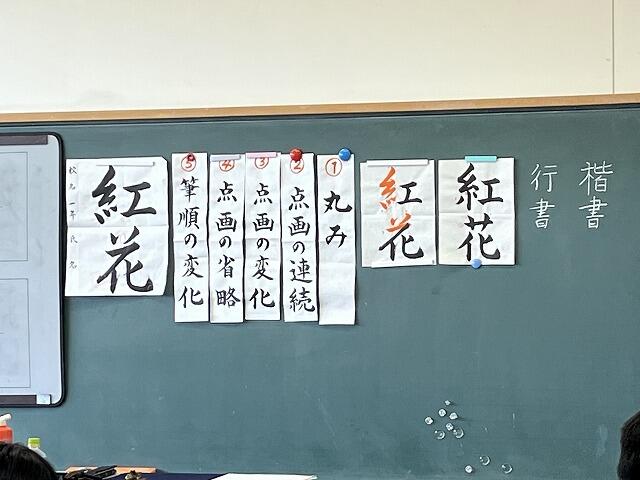 楷書
行書
紅花
紅花
①丸み
②点画の連続
③点画の変化
④点画の省略
⑤筆順の変化
紅花
校名一年氏名